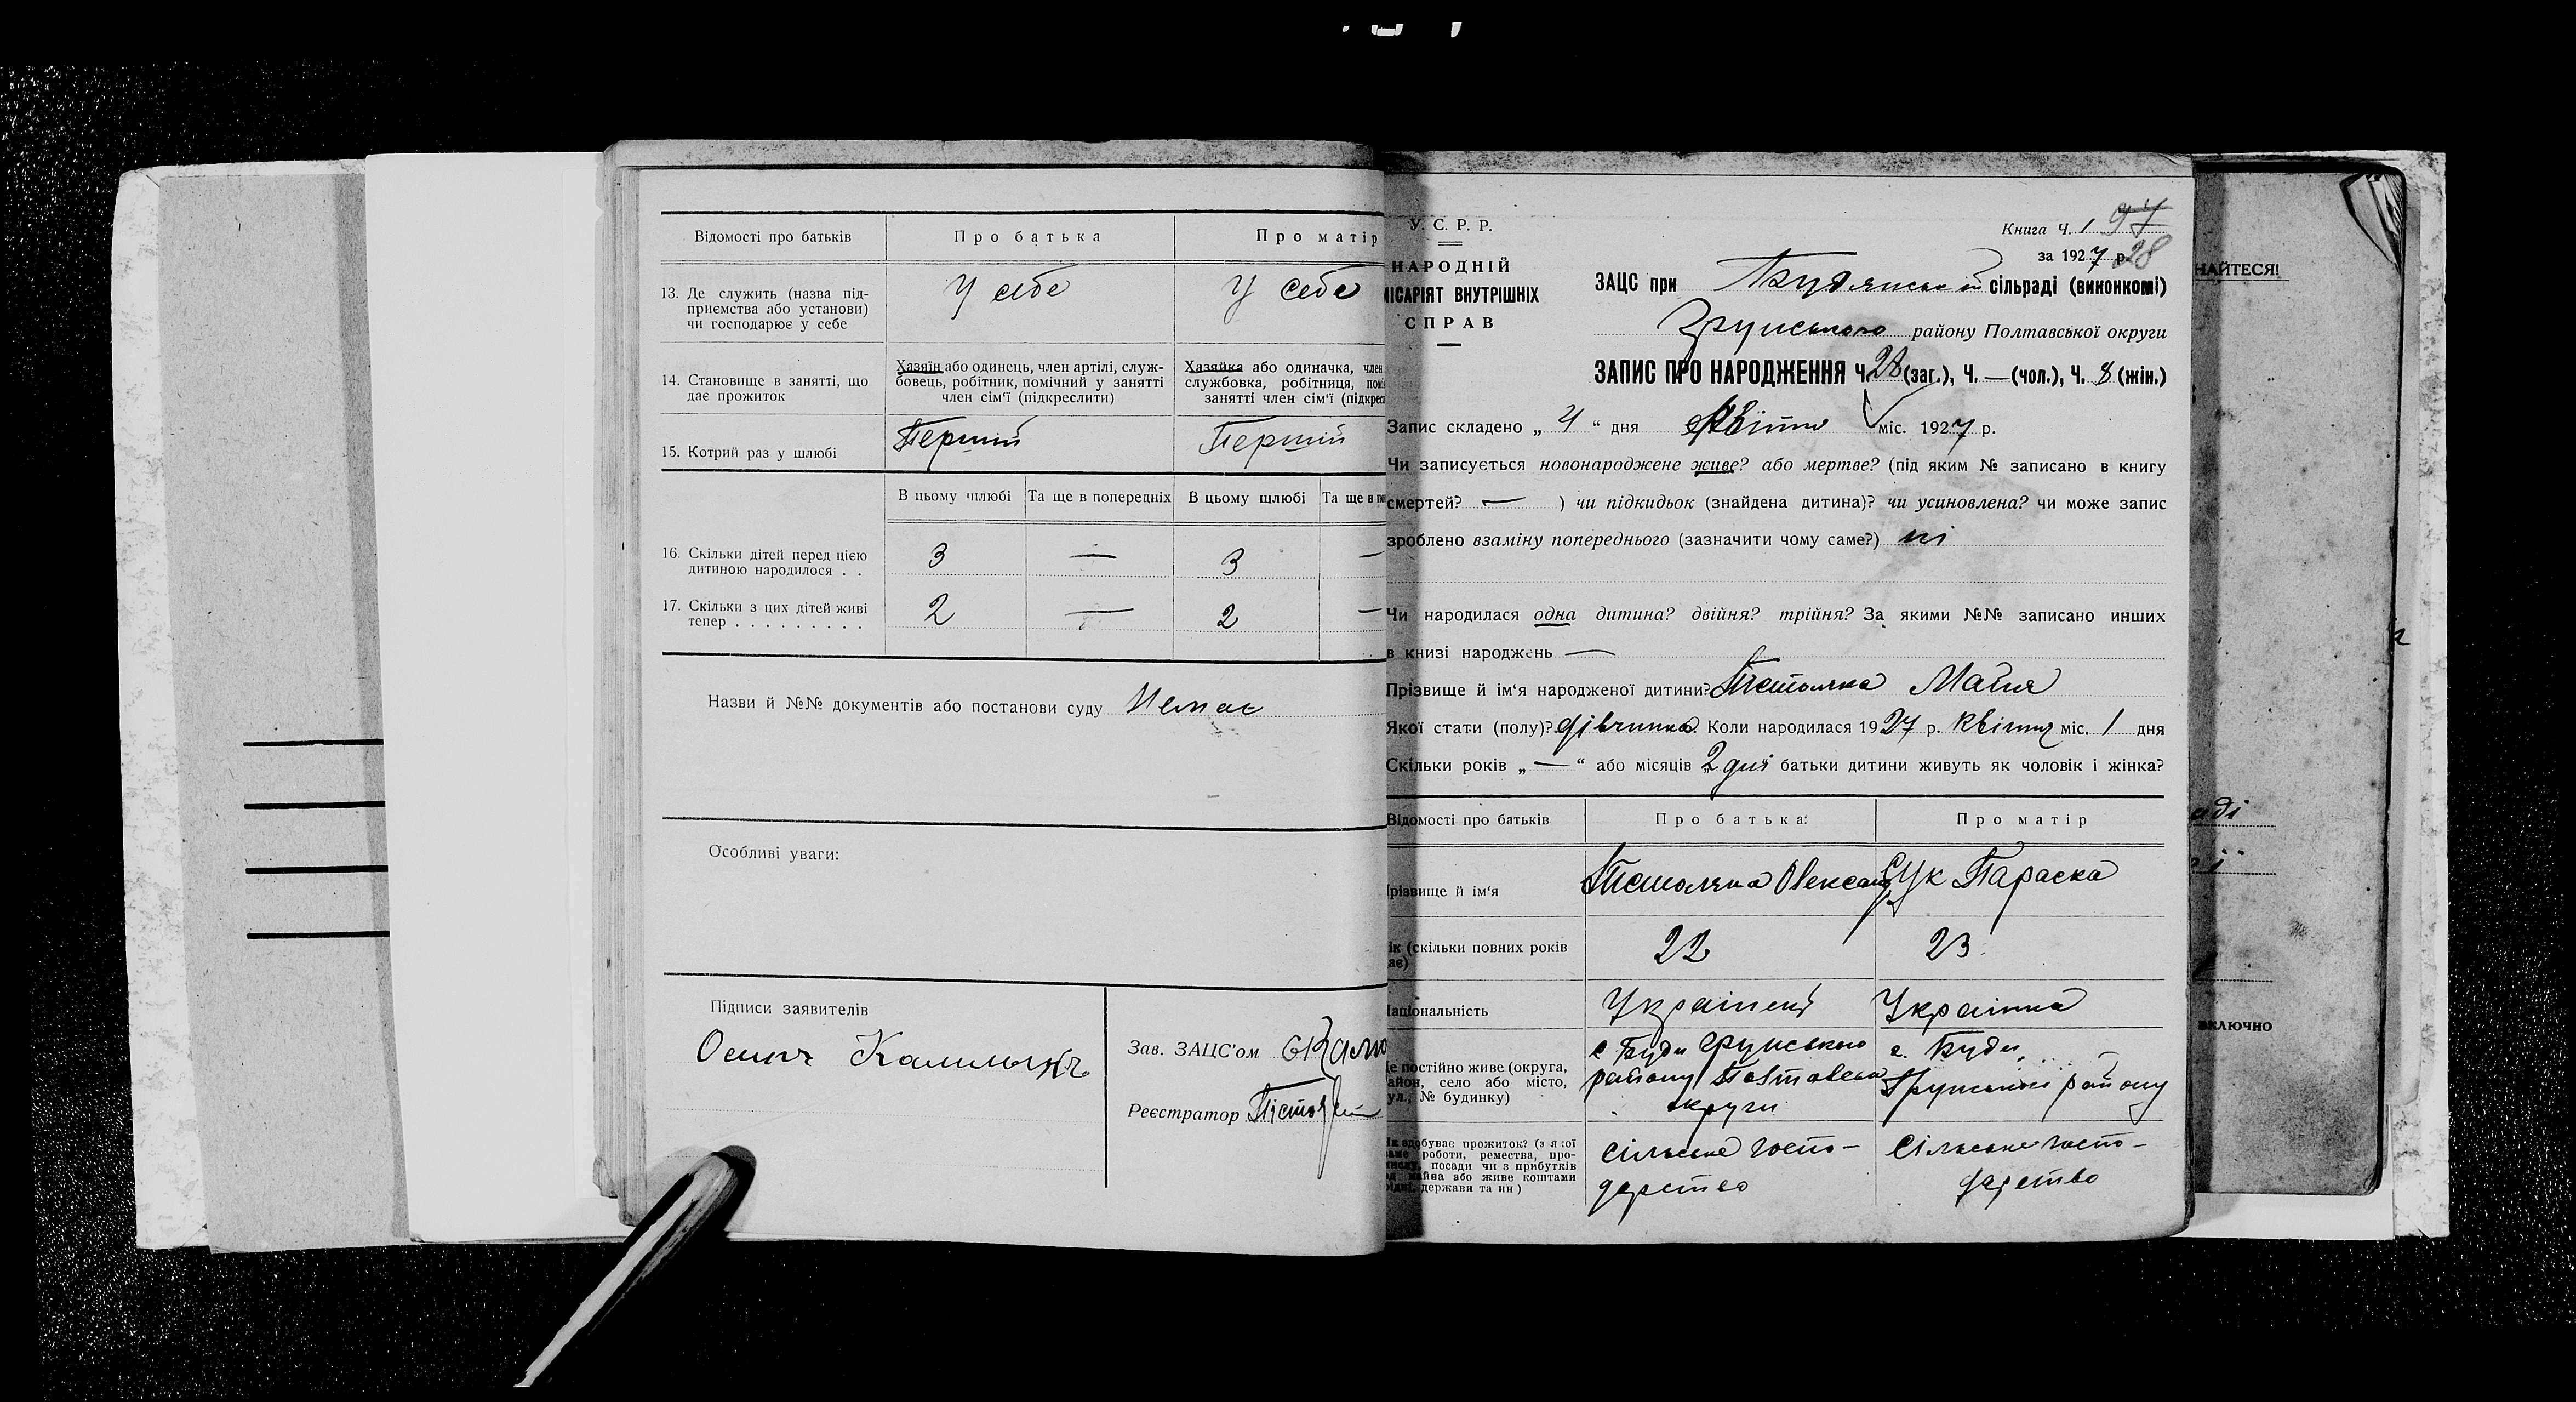 Відомості про батьків
Про батька
Про матір
13. Де служить (назва під-
приємства або установи)
чи господарює у себе
У себе
У себе
14. Становище в занятті, що
дає прожиток
Хазяїн або одинець, член артілі, служ-
бовець, робітник, помічний у занятті
член сім'ї (підкреслити)
Хазяйка або одиначка, член
службовка, робітниця,
занятті член сім'ї
15. Котрий раз у шлюбі
Перший
Перший
В цьому шлюбі
Та ще в попередніх
В цьому шлюбі
Та ще в
16. Скільки дітей перед цією
дитиною народилося . .
3 — 3 —
17. Скільки з цих дітей живі
тепер . . . . . . . . .
2 — 2 —
Назви й №№ документів або постанови суду Немає
Особливі уваги:
Підписи заявителів
Осипъ
Зав. ЗАЦС'ом
Реєстратор
У. С. Р. Р.
НАРОДНІЙ
ІСАРІЯТ ВНУТРІШНІХ
СПРАВ
Книга Ч. 1 97
за 1927 р. 28
ЗАЦС при сільраді (виконкомі)
Грунського району Полтавської округи
ЗАПИС ПРО НАРОДЖЕННЯ Ч. 28 (заг.), Ч. — (чол.), Ч. 8 (жін.)
Запис складено „ 4 “ дня Квітня міс. 1927 р.
Чи записується новонароджене живе? або мертве? (під яким № записано в книгу
смертей? — ) чи підкидьок (знайдена дитина)? чи усиновлена? чи може запис
зроблено взаміну попереднього (зазначити чому саме?) ні
Чи народилася одна дитина? двійня? трійня? За якими №№ записано инших
в книзі народжень —
Прізвище й ім'я народженої дитини? Майя
Якої стати (полу)? дівчинка. Коли народилася 1927 р. Квітня міс. 1 дня
Скільки років „ — “ або місяців 2 дні батьки дитини живуть як чоловік і жінка?
Відомості про батьків
Про батька:
Про матір
різвище й ім'я
Олександр
Сук Параска
ік (скільки повних років
ає)
22
23
аціональність
Українець
Українка
е постійно живе (округа,
айон, село або місто,
ул., № будинку)
с Буди Грунського
району Полтавської
округи
с. Буди,
Грунський району
Як здобуває прожиток? (з якої
саме роботи, ремества, про-
мислу, посади чи з прибутків
од майна або живе коштами
рідні, держави та ин)
сільське госпо-
дарство
Сільське госпо-
дарство
НАЙТЕСЯ!
аді
ї
включно